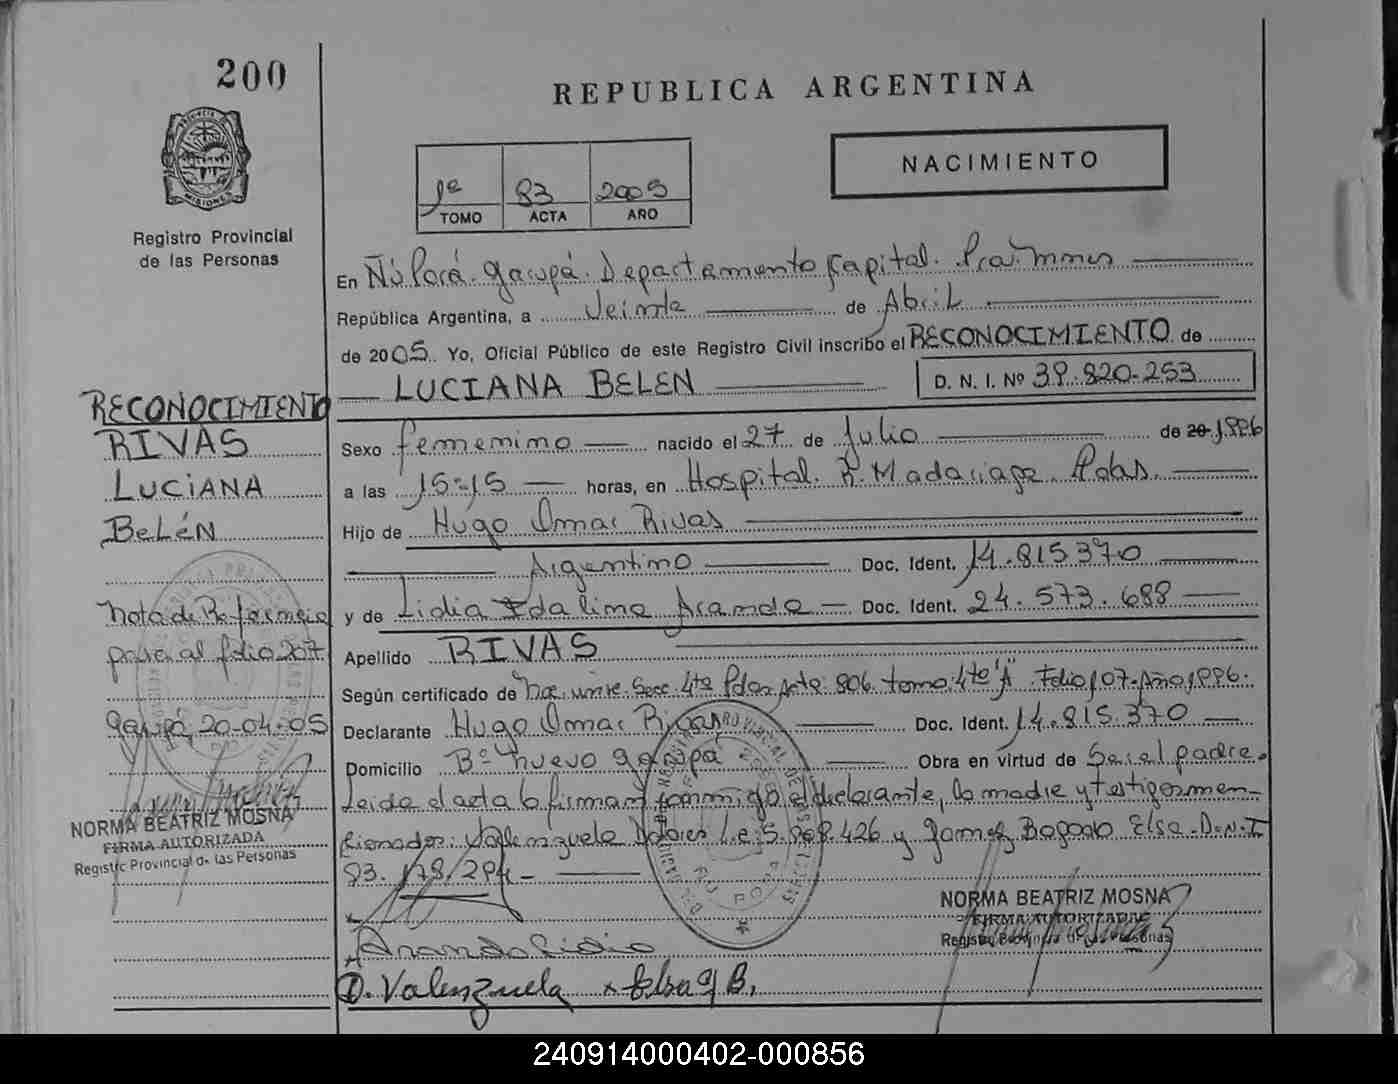 200
REPUBLICA ARGENTINA
NACIMIENTO
1º 83 2005
TOMO ACTA AÑO
Registro Provincial
de las Personas
En Ñú Porá. Garupá. Departamento Capital. Pcia. Mnes
República Argentina, a Veinte de Abril
de 2005. Yo, Oficial Público de este Registro Civil inscribo el RECONOCIMIENTO de
LUCIANA BELEN D. N. I. Nº 39.820.253
RECONOCIMIENTO
RIVAS
LUCIANA
BELÉN
Nota de Referencia
pasa al folio 207
Garupá, 20-04-05
NORMA BEATRIZ MOSNA
FIRMA AUTORIZADA
Registro Provincial de las Personas
Sexo femenino nacido el 27 de Julio de 20 1996
a las 15:15 horas, en Hospital. R. Madariaga. Pdas.
Hijo de Hugo Omar Rivas
Argentino Doc. Ident. 14.815.370
y de Lidia Idalina Aranda Doc. Ident. 24.573.688
Apellido RIVAS
Según certificado de Nac. Secc. 4ta Pdas Acta 806. tomo 4to "A" Folio 107. Año 1996.
Declarante Hugo Omar Rivas Doc. Ident. 14.815.370
Domicilio Bº Nuevo Garupá Obra en virtud de Ser el padre.
Leida el acta la firman conmigo el declarante, la madre y testigos men-
cionados: Valenzuela L.E. 5. 426 y Gomez Bogado Elsa. D.N.I
93.178.294
NORMA BEATRIZ MOSNA
FIRMA AUTORIZADA
Registro Provincial de las Personas
Aranda Lidia
D. Valenzuela x Elsa G B.
240914000402-000856